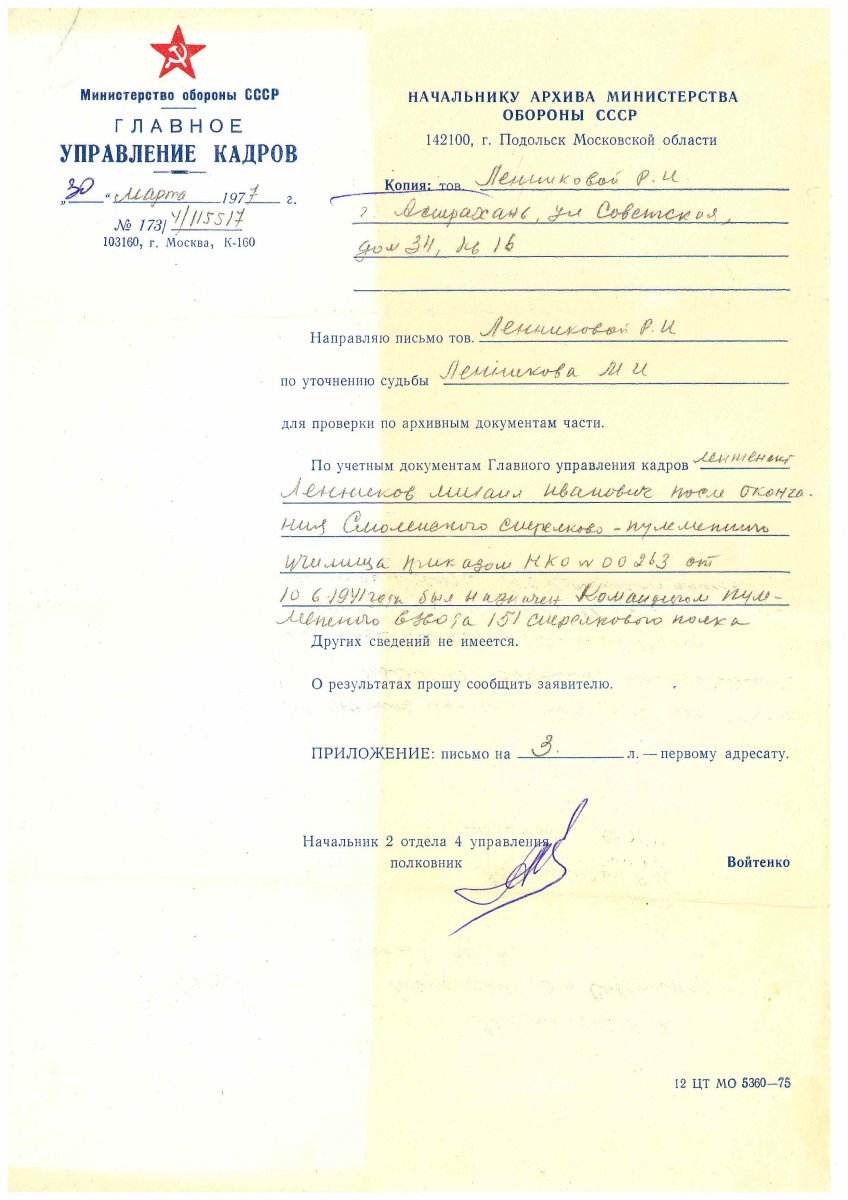 Министерство обороны СССР
ГЛАВНОЕ
УПРАВЛЕНИЕ КАДРОВ
„30 “ марта 1977 г.
№ 173/4/115517
103160, г. Москва, К-160
НАЧАЛЬНИКУ АРХИВА МИНИСТЕРСТВА
ОБОРОНЫ СССР
142100, г. Подольск Московской области
Копия: тов. Ленниковой Р. И.
г. Астрахань, ул Советская,
дом 34, кв 16
Направляю письмо тов. Ленниковой Р. И
по уточнению судьбы Ленникова М И
для проверки по архивным документам части.
По учетным документам Главного управления кадров лейтенант
Ленников Михаил Иванович после оконча-
ния Смоленского стрелково-пулеметного
училища приказом НКО № 00263 от
10 6 1941 года был назначен Командиром пуле-
метного взвода 151 стрелкового полка
Других сведений не имеется.
О результатах прошу сообщить заявителю.
ПРИЛОЖЕНИЕ: письмо на 3. л. — первому адресату.
Начальник 2 отдела 4 управления
полковник Войтенко
12 ЦТ МО 5360—75